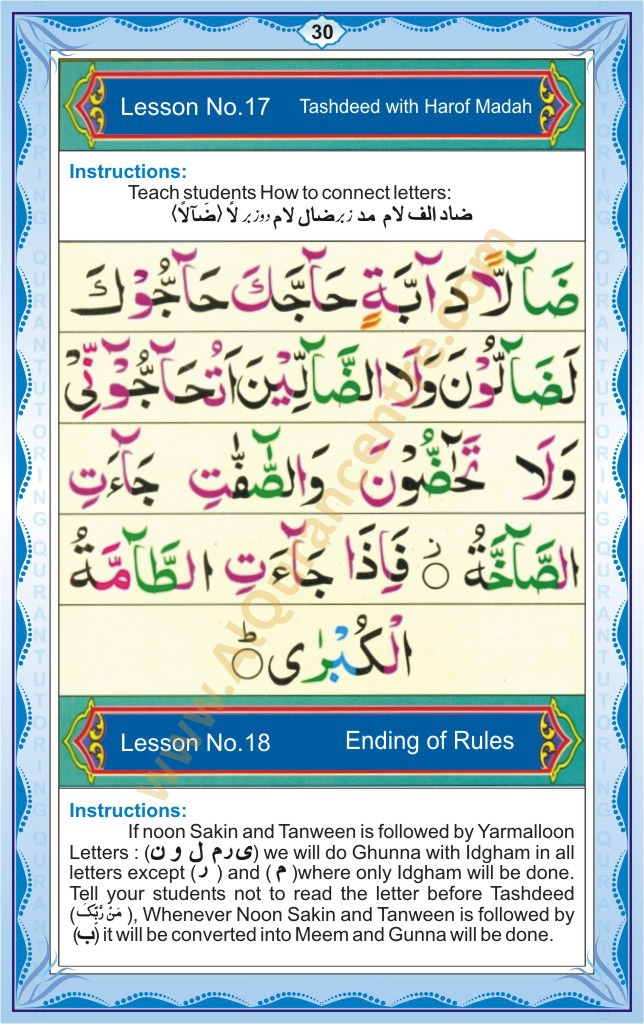 30
Lesson No.17 Tashdeed with Harof Madah
Instructions:
Teach students How to connect letters:
ضاد الف لام مد زبر ضال لام دوزبر لاً (ضَآلاًّ)
ضَآلًّا دَآبَّةٍ حَآجَّكَ حَآجُّوْكَ
لَضَآلُّوْنَ وَلَا الضَّآلِّيْنَ اَتُحَآجُّوْٓنِّىْ
وَلَا تَحٰٓضُّوْنَ وَالصّٰٓفّٰتِ جَآءَتِ
الصَّآخَّةُ ز فَاِذَا جَآءَتِ الطَّآمَّةُ
الْكُبْرٰى ط
Lesson No.18 Ending of Rules
Instructions:
If noon Sakin and Tanween is followed by Yarmalloon
Letters : (ی ر م ل و ن) we will do Ghunna with Idgham in all
letters except ( ر ) and ( م )where only Idgham will be done.
Tell your students not to read the letter before Tashdeed
(مَنْ رَّبُّكَ ), Whenever Noon Sakin and Tanween is followed by
(ب) it will be converted into Meem and Gunna will be done.
www.AlQurancentre.com
QURAN TUTORING QURAN TUTORING
QURAN TUTORING QURAN TUTORING